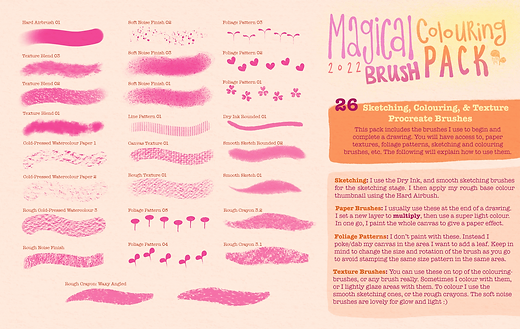 Hard Airbrush 01
Texture Blend 03
Texture Blend 02
Texture Blend 01
Cold-Pressed Watercolour Paper 1
Cold-Pressed Watercolour Paper 2
Rough Cold-Pressed Watercolour 3
Rough Noise Finish
Rough Crayon Waxy Angled
Soft Noise Finish 02
Soft Noise Finish 03
Soft Noise Finish 01
Line Pattern 01
Canvas Texture 01
Rough Texture 01
Foliage Pattern 05
Foliage Pattern 04
Foliage Pattern 03
Foliage Pattern 02
Foliage Pattern 01
Dry Ink Rounded 01
Smooth Sketch Rounded 02
Smooth Sketch 01
Rough Crayon 2.2
Rough Crayon 3.1
Magical Colouring
2022 BRUSH PACK
26 Sketching, Colouring, & Texture
Procreate Brushes
This pack includes the brushes I use to begin and
complete a drawing. You will have access to, paper
textures, foliage patterns, sketching and colouring
brushes, etc. The following will explain how to use them.
Sketching: I use the Dry Ink, and smooth sketching brushes
for the sketching stage. I then apply my rough base colour
thumbnail using the Hard Airbrush.
Paper Brushes: I usually use these at the end of a drawing.
I set a new layer to multiply, then use a super light colour.
In one go, I paint the whole canvas to give a paper effect.
Foliage Patterns: I don't paint with these. Instead I
poke/dab my canvas in the area I want to add a leaf. Keep in
mind to change the size and rotation of the brush as you go
to avoid stamping the same size pattern in the same area.
Texture Brushes: You can use these on top of the colouring
brushes, or any brush really. Sometimes I colour with them,
or I lightly glaze areas with them. To colour I use the
smooth sketching ones, or the rough crayons. The soft noise
brushes are lovely for glow and light :)